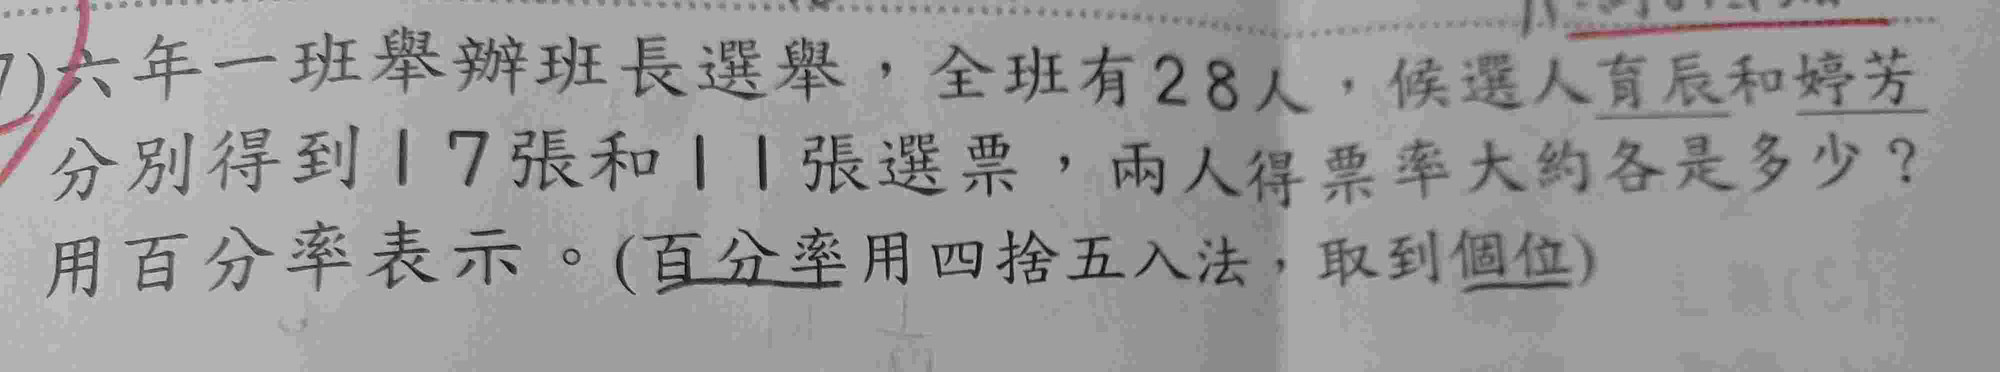 7)六年一班舉辦班長選舉，全班有28人，候選人育辰和婷芳
分別得到17張和11張選票，兩人得票率大約各是多少？
用百分率表示。(百分率用四捨五入法，取到個位)